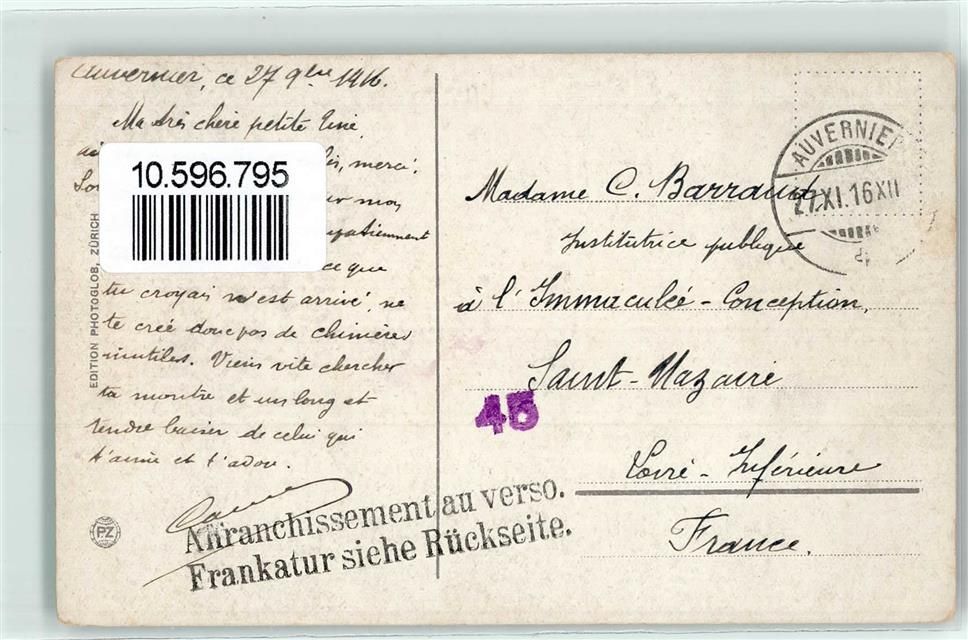 Auvernier, ce 27 9bre 1916.
Ma très chère petite
merci.
mon
impatiemment
ce que
tu croyais n'est arrivé, ne
te crée donc pas de chimères
inutiles. Viens vite chercher
ta montre et un long et
tendre baiser de celui qui
t'aime et t'adore.
10.596.795
EDITION PHOTOGLOB, ZÜRICH
PZ
Affranchissement au verso.
Frankatur siehe Rückseite.
AUVERNIER
27.XI.16 XII
Madame C. Barraud
Institutrice publique
à l'Immaculée-Conception,
Saint-Nazaire
45
Loire-Inférieure
France.